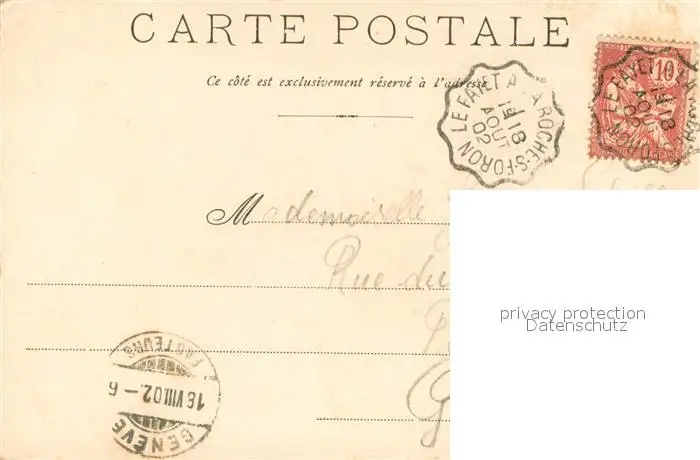 CARTE POSTALE
Ce côté est exclusivement réservé à l'adresse
LE FAYET A LA ROCHE-S-FORON
18
AOUT
02
10
LE FAYET
18
AOUT
FORON
Mademoiselle
Rue du
privacy protection
Datenschutz
FACTEURS
18 VIII.02.-6
GENÈVE